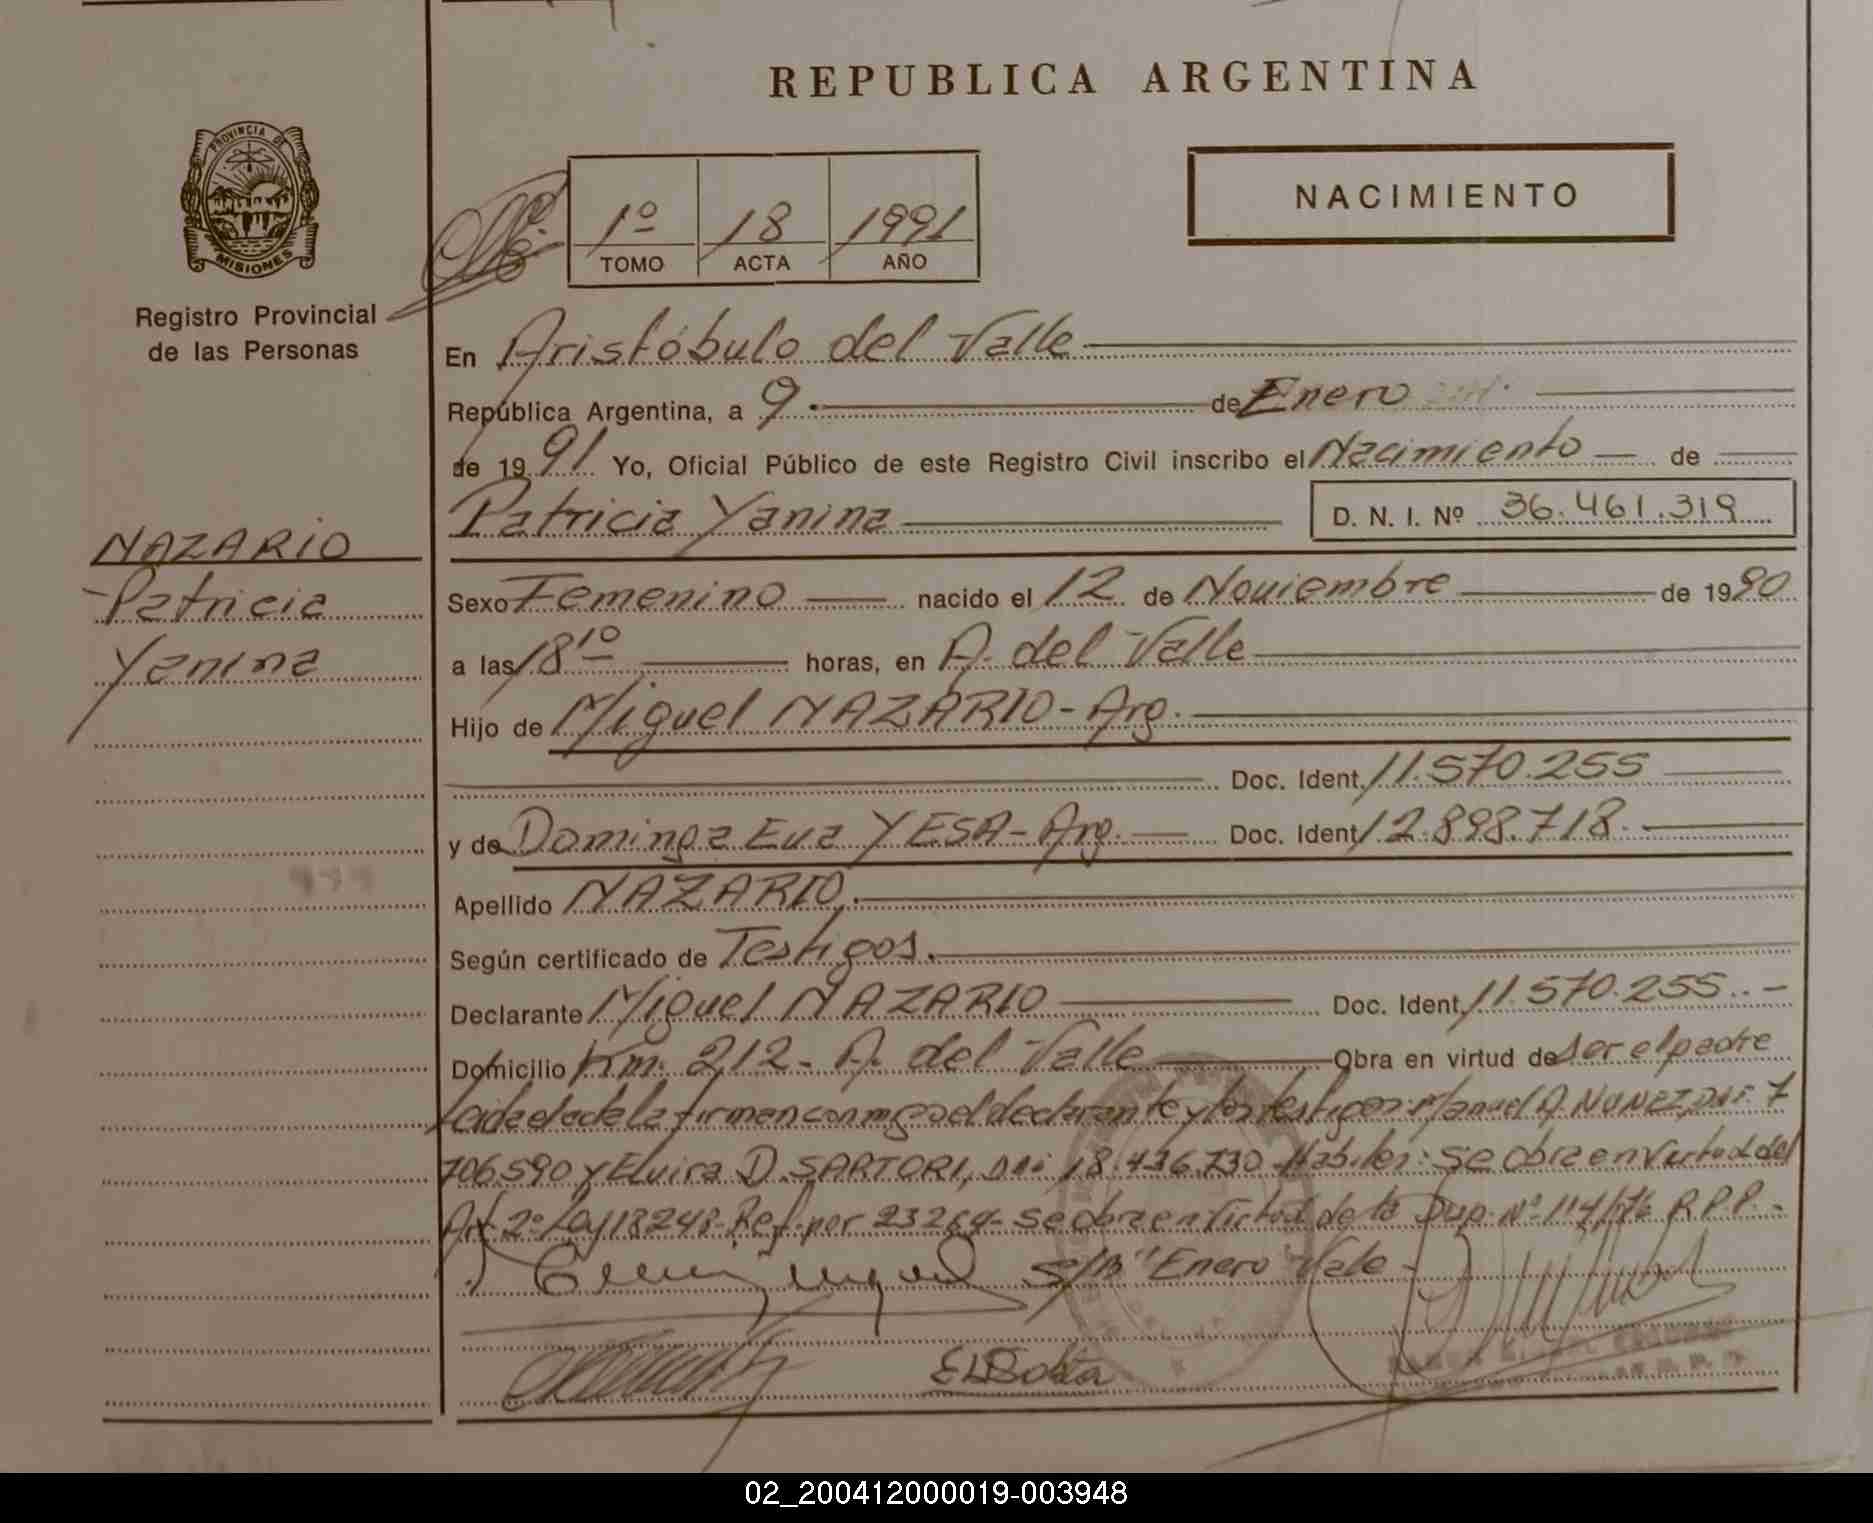 REPUBLICA ARGENTINA
PROVINCIA DE
MISIONES
Registro Provincial
de las Personas
1º 18 1991
TOMO ACTA AÑO
NACIMIENTO
En Aristóbulo del Valle
República Argentina, a 9. de Enero
de 1991 Yo, Oficial Público de este Registro Civil inscribo el Nacimiento de
Patricia Yanina D. N. I. Nº 36.461.319
NAZARIO
Patricia
Yanina
Sexo Femenino nacido el 12 de Noviembre de 1990
a las 18 10 horas, en A. del Valle
Hijo de Miguel NAZARIO - Arg.
Doc. Ident. 11.570.255
y de Dominga Eva YESA - Arg. Doc. Ident. 12.898.718.
Apellido NAZARIO.
Según certificado de Testigos.
Declarante Miguel NAZARIO Doc. Ident. 11.570.255..-
Domicilio Km. 212 - A. del Valle Obra en virtud de ser el padre
Leida el acta la firman conmigo el declarante y los testigos: Manuel A. NUNEZ, DNI: 7
706.590 y Elvira D. SARTORI, DNI: 18.436.730 Habiles: Se obra en virtud del
Art. 2º Ley 18248. Ref. por 23264 - Se obra en virtud de la Disp. Nº 114/76 R.P.P. -
S/B "Enero" Vale -